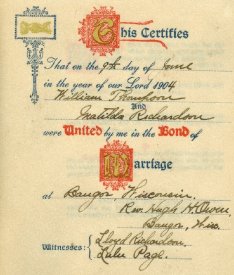 This Certifies
That on the 9th day of June
in the year of our Lord 1904
William Thompson
And
Matilda Richardson
were United by me in the Bond of
Marriage
at Bangor, Wisconsin.
Rev. Hugh H. Owen,
Bangor, Wis.
Witnesses: Lloyd Richardson.
Lulu Page.